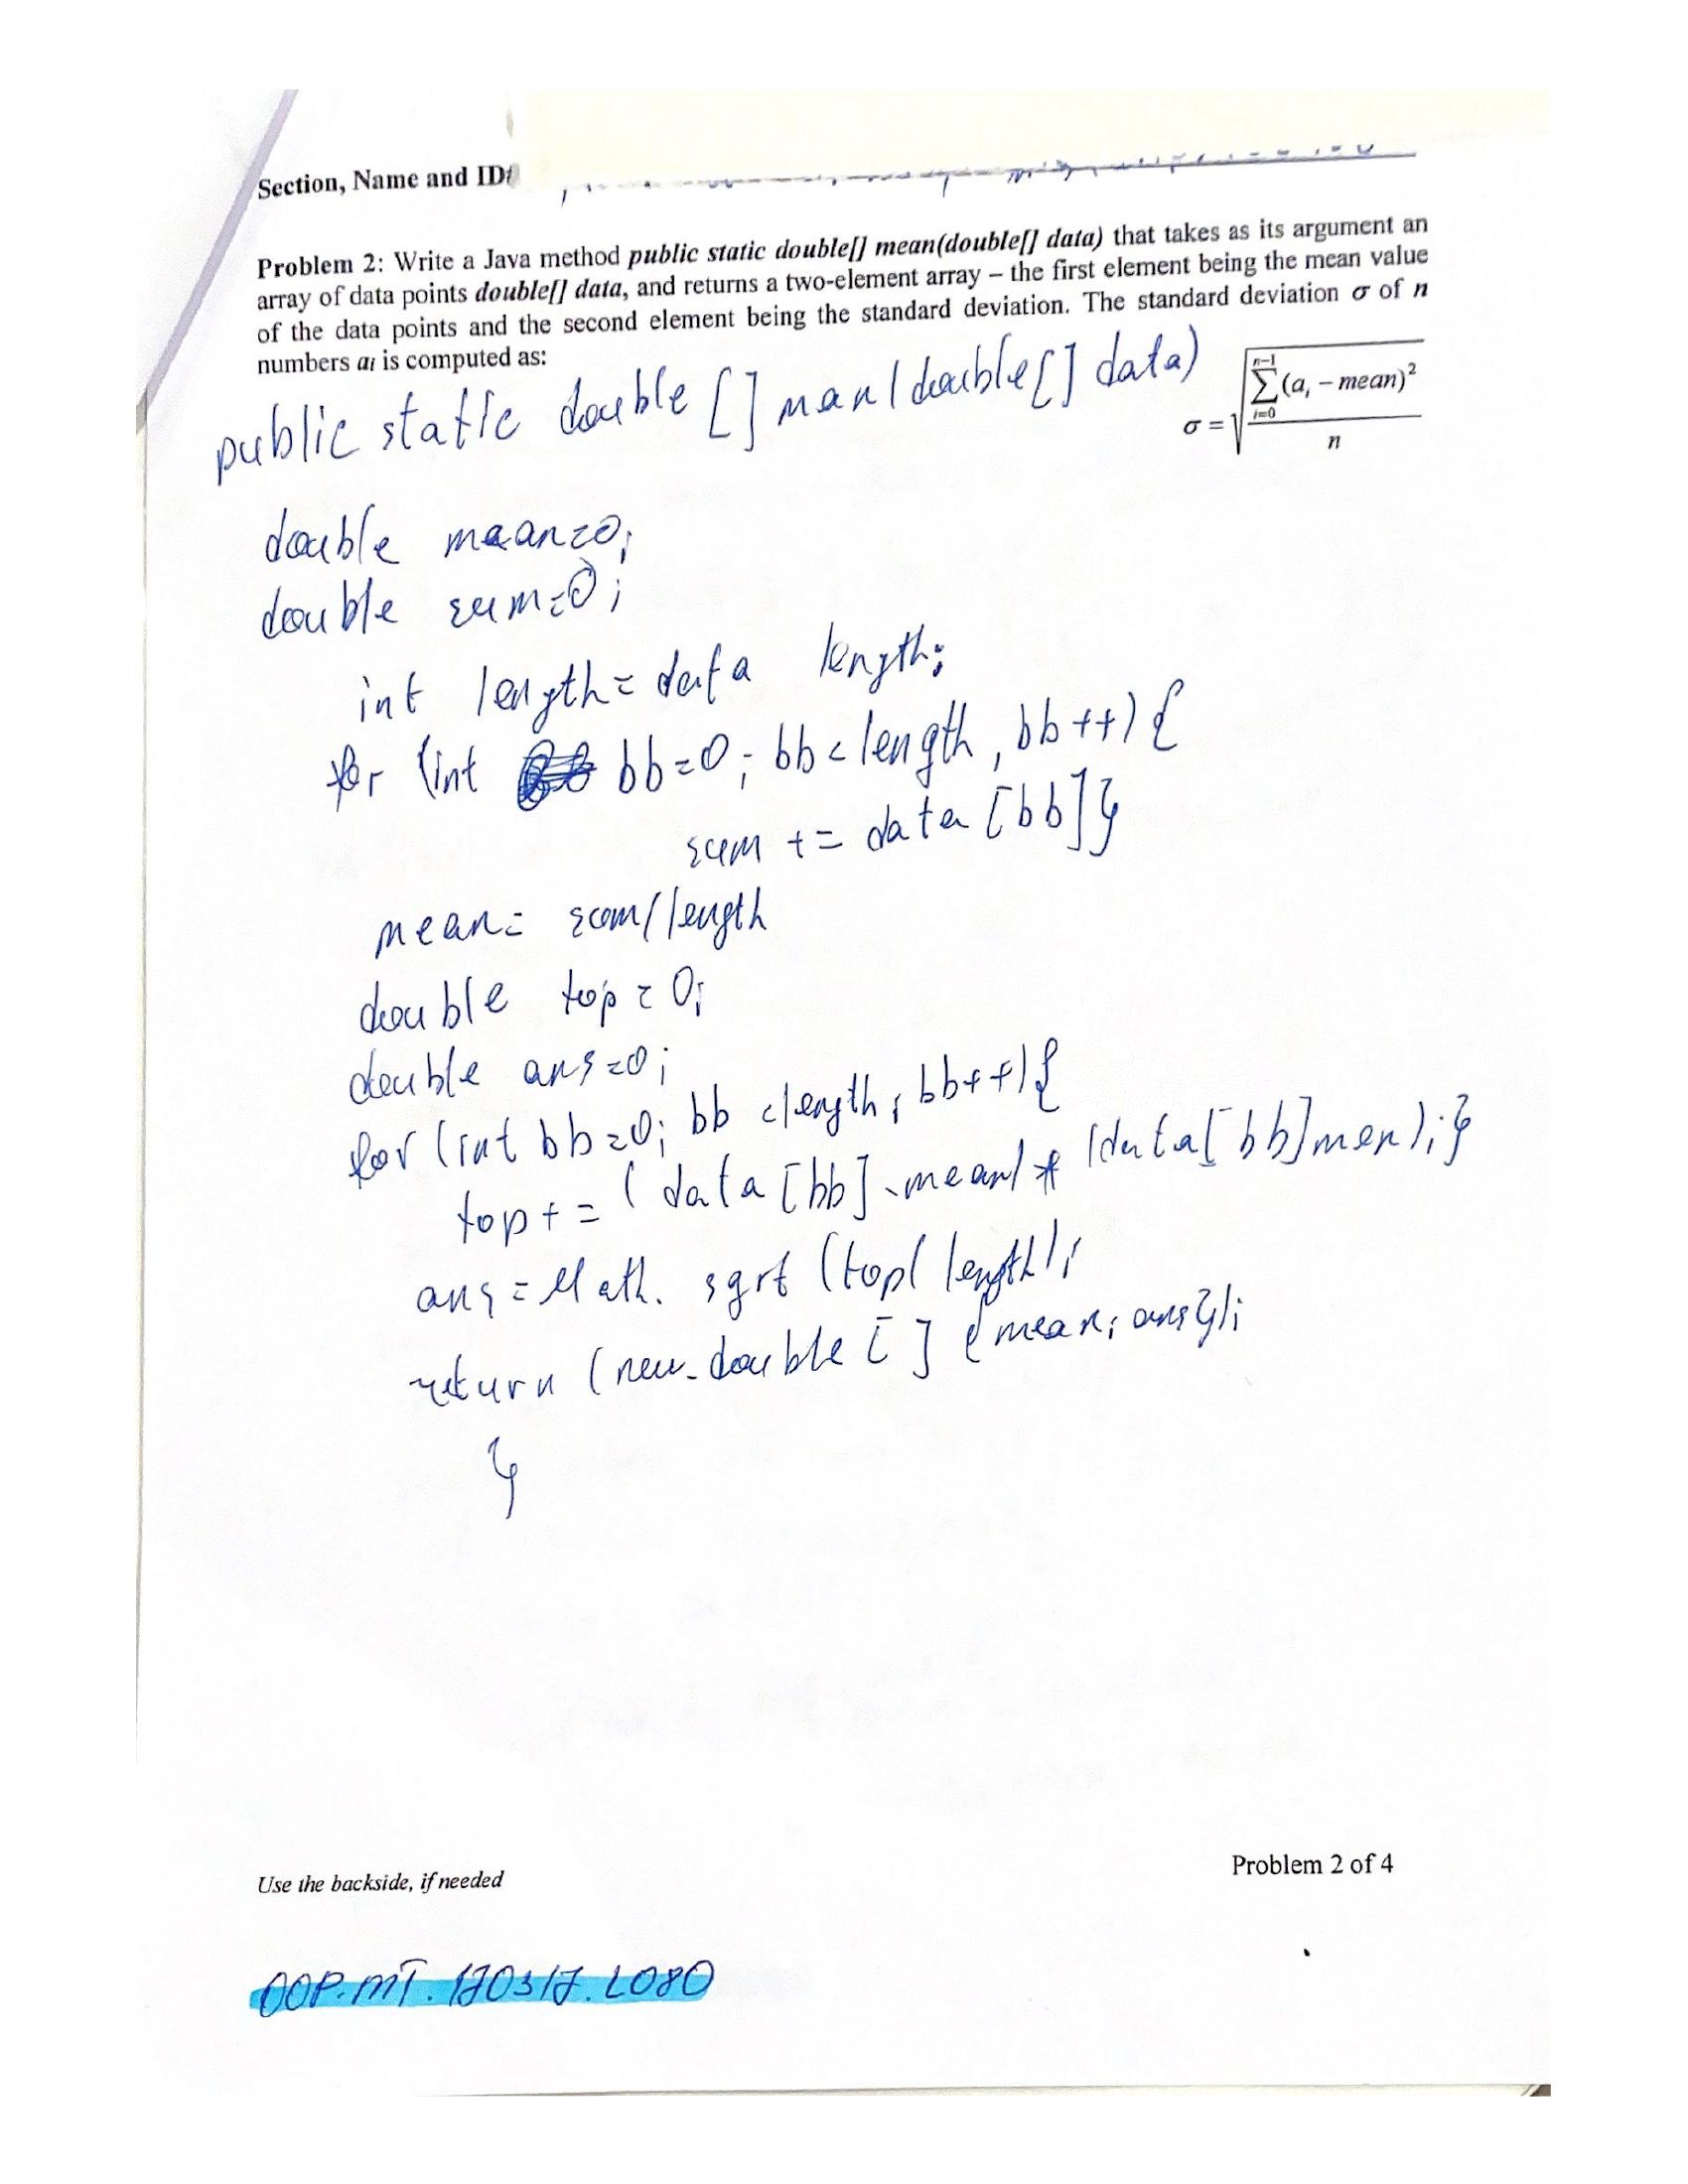 Section, Name and ID#
Problem 2: Write a Java method public static double[] mean(double[] data) that takes as its argument an
array of data points double[] data, and returns a two-element array – the first element being the mean value
of the data points and the second element being the standard deviation. The standard deviation σ of n
numbers aᵢ is computed as:
σ = √(∑_{i=0}^{n-1} (aᵢ – mean)² / n)
public static double [] mean(double[] data)
double mean=0;
double sum=0;
int length= data length;
for (int bb=0; bb<length, bb++) {
sum += data [bb]}
mean= sum/length
double top = 0;
double ans=0;
for (int bb=0; bb <length; bb++) {
top += (data [bb]-mean) * (data[bb]men);}
ans = Math. sqrt (top/ length);
return (new double [] {mean; ans});
}
Use the backside, if needed
Problem 2 of 4
OOP.MT.170317.L080